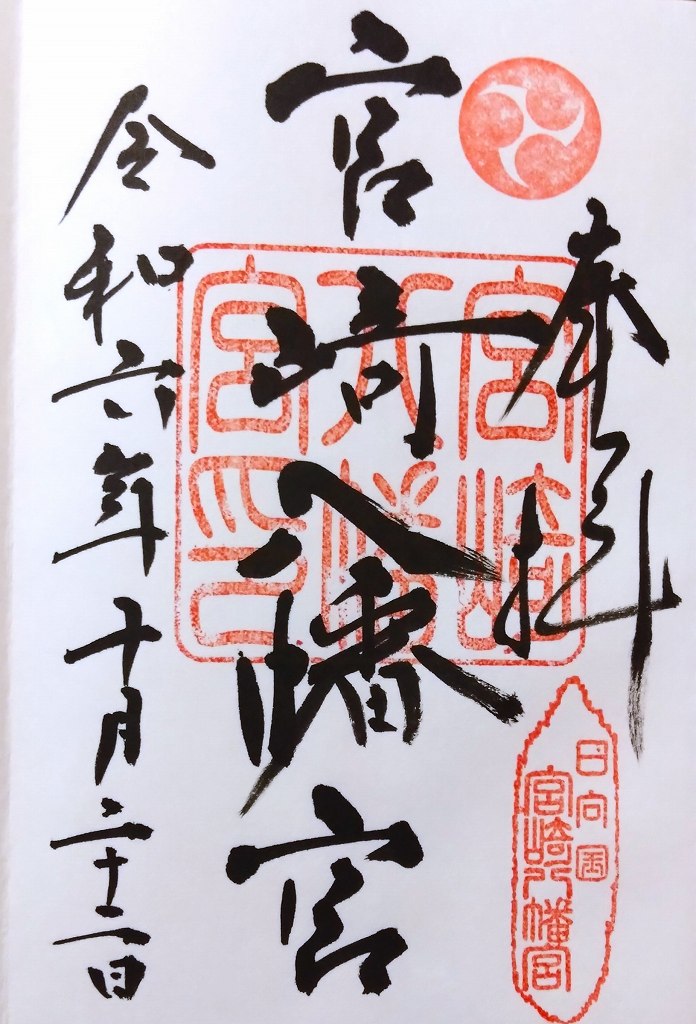 奉拝
日向国
宮崎八幡宮
宮崎八幡宮
宮崎
八幡
宮印
令和六年十月二十二日